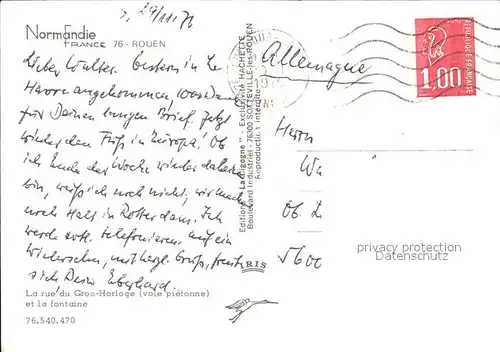 Normandie
FRANCE 76 - ROUEN
Lieber Walter. Gestern in Le
Havre angekommen
für Deinen Brief. Jetzt
wieder den Fuß in Europa! Ob
ich Ende der Woche wieder daheim
bin, weiß ich noch nicht, wir machen
noch Halt in Rotterdam. Ich
werde evtl. telefonieren. Auf ein
Wiedersehen, mit herzl. Gruß, freut
sich Dein Eberhard.
La rue du Gros-Horloge (voie piétonne)
et la fontaine
76.540.470
Editions "La Cigogne" - Exclusivité HACHETTE
Boulevard Industriel - 76300 SOTTEVILLE-les-ROUEN
Reproduction interdite
IRIS
Allemagne
REPUBLIQUE FRANÇAISE
1,00
Herrn
Ob
5600
privacy protection
Datenschutz